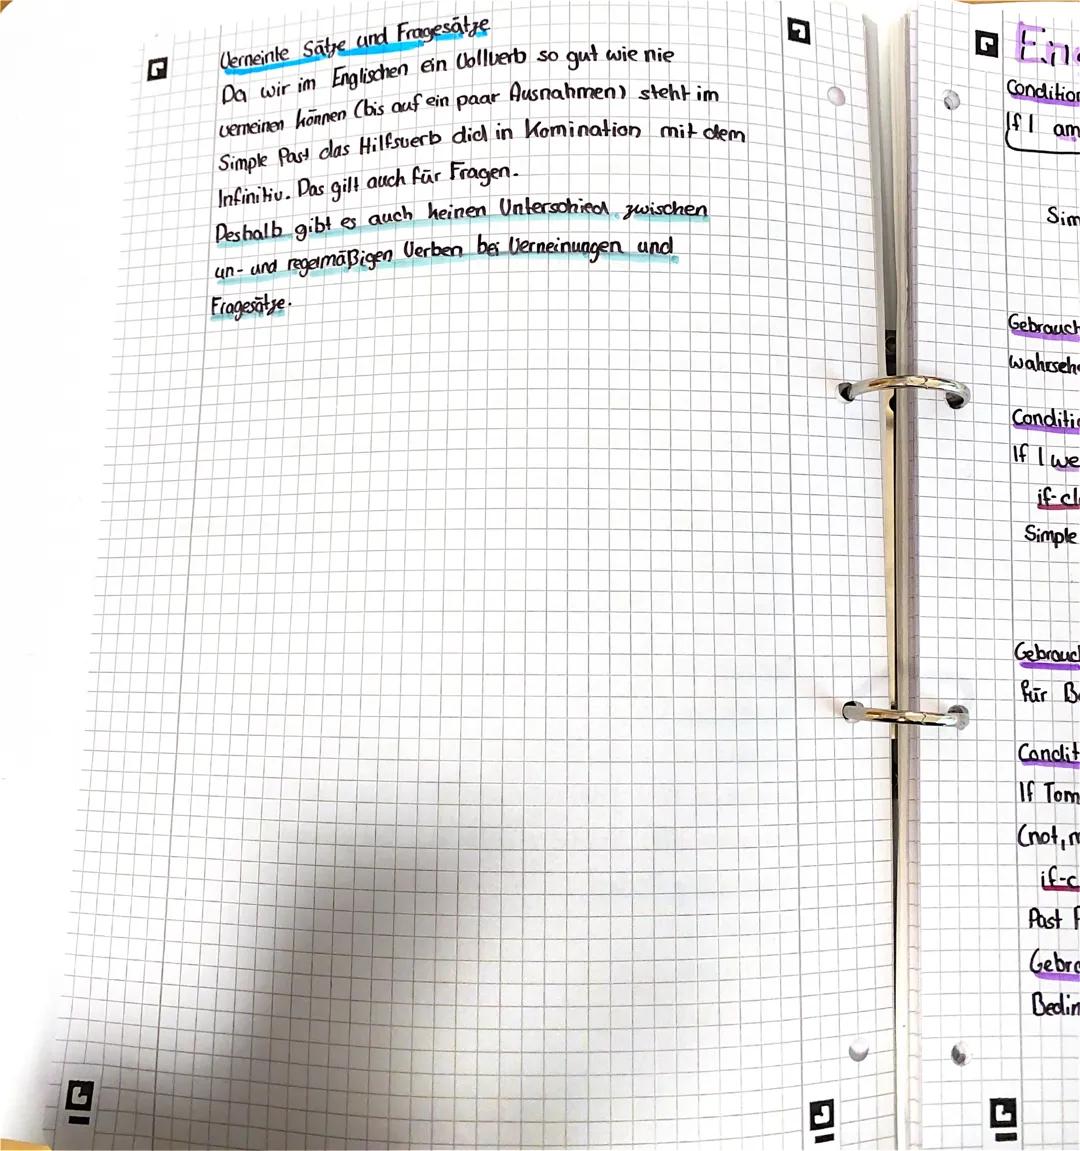 Verneinte Sätze und Fragesätze
Da wir im Englischen ein Vollverb so gut wie nie
verneinen können (bis auf ein paar Ausnahmen) steht im
Simple Past das Hilfsverb did in Komination mit dem
Infinitiv. Das gilt auch für Fragen.
Deshalb gibt es auch keinen Unterschied zwischen
un- und regelmäßigen Verben bei Verneinungen und
Fragesätze.
Condition
If I am
Sim
Gebrauch
wahrsch
Conditio
If I we
if-cl
Simple
Gebrauch
für B
Condit
If Tom
(not, n
if-c
Past P
Gebra
Bedin